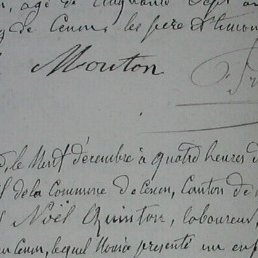 , âgé de Cinquante Sept an
de Cenon, les père et témoin
Mouton
le Neuf décembre à quatre heures d
de la Commune de Cenon, Canton de
Noël Quinton, laboureur,
Cenon, lequel Nous a présenté un enf